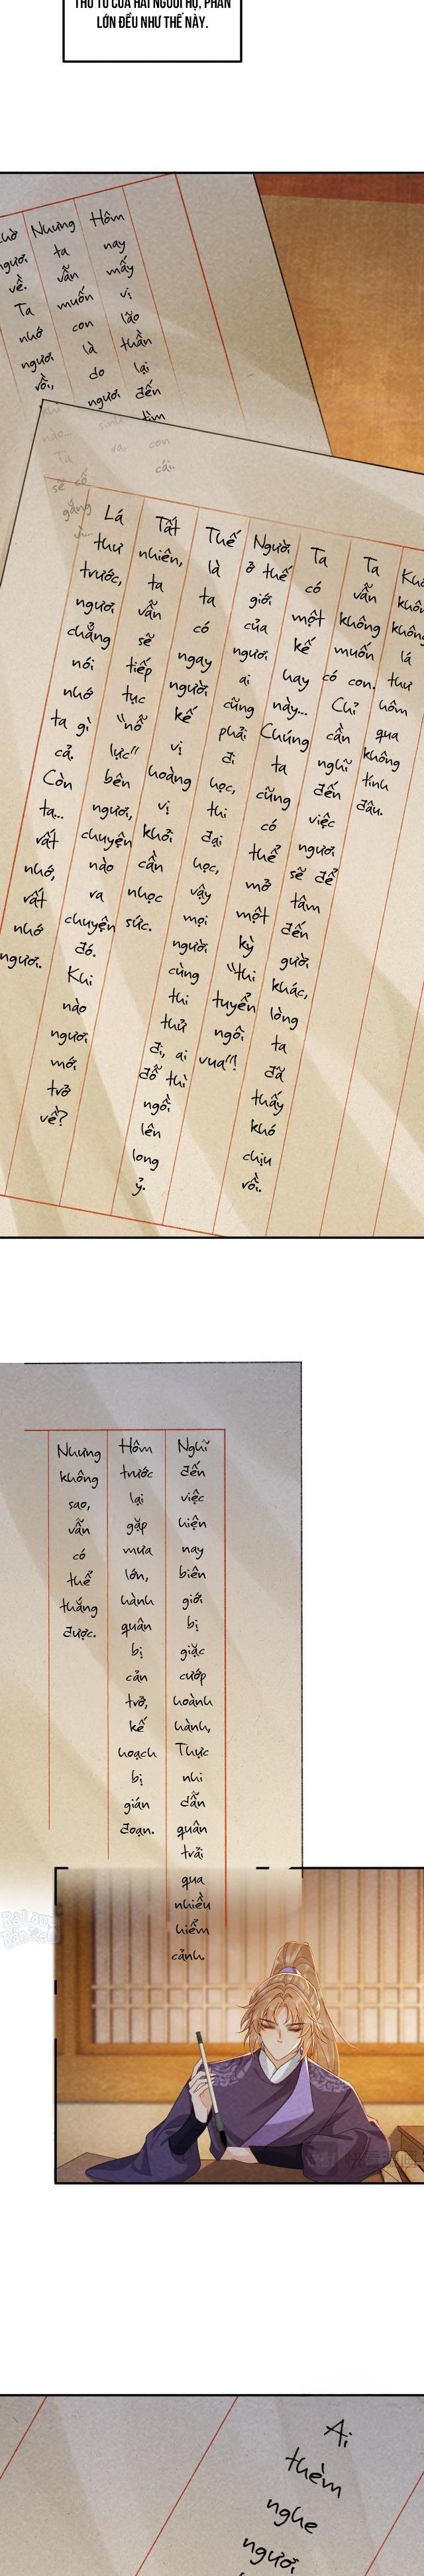 THƯ TỪ CỦA HAI NGƯỜI HỌ, PHẦN
LỚN ĐỀU NHƯ THẾ NÀY.
Hôm nay mấy vị lão thần lại đến tìm con cái..
Nhưng ta vẫn muốn con là do ngươi sinh ra
ngươi về. Ta nhớ ngươi rồi, nào... Ta sẽ cố gắng vì...
không lá thư hôm qua không tính đâu.
Ta vẫn không muốn có con. Chỉ cần nghĩ đến việc ngươi sẽ để tâm đến gười khác, lòng ta đã thấy khó chịu rồi.
Ta có một kế hay này... Chúng ta cũng có thể mở một kỳ "thi tuyển ngôi vua"!
Người ở thế giới của ngươi ai cũng phải đi học, thi đại học, vậy mọi người cùng thi thử đi, ai đỗ thì ngồi lên long ỷ.
Thế là ta có ngay người kế vị hoàng vị khỏi cần nhọc sức.
Tất nhiên, ta vẫn sẽ tiếp tục "nỗ lực" bên ngươi, chuyện nào ra chuyện đó. Khi nào ngươi mới trở về?
Lá thư trước, ngươi chẳng nói nhớ ta gì cả. Còn ta... rất nhớ, rất nhớ ngươi.
Nghĩ đến việc hiện nay biên giới bị giặc cướp hoành hành, Thực nhi dẫn quân trải qua nhiều hiểm cảnh.
Hôm trước lại gặp mưa lớn, hành quân bị cản trở, kế hoạch bị gián đoạn.
Nhưng không sao, vẫn có thể thắng được.
Ai thèm nghe ngươi